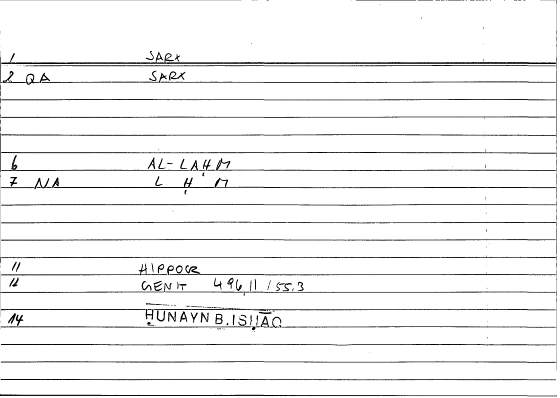 1 SARX
2 QA SARX
6 AL-LAḤM
7 NA L Ḥ M
11 HIPPOCR
12 GENIT 496,11 / 55.3
14 ḤUNAYN B. ISḤĀQ